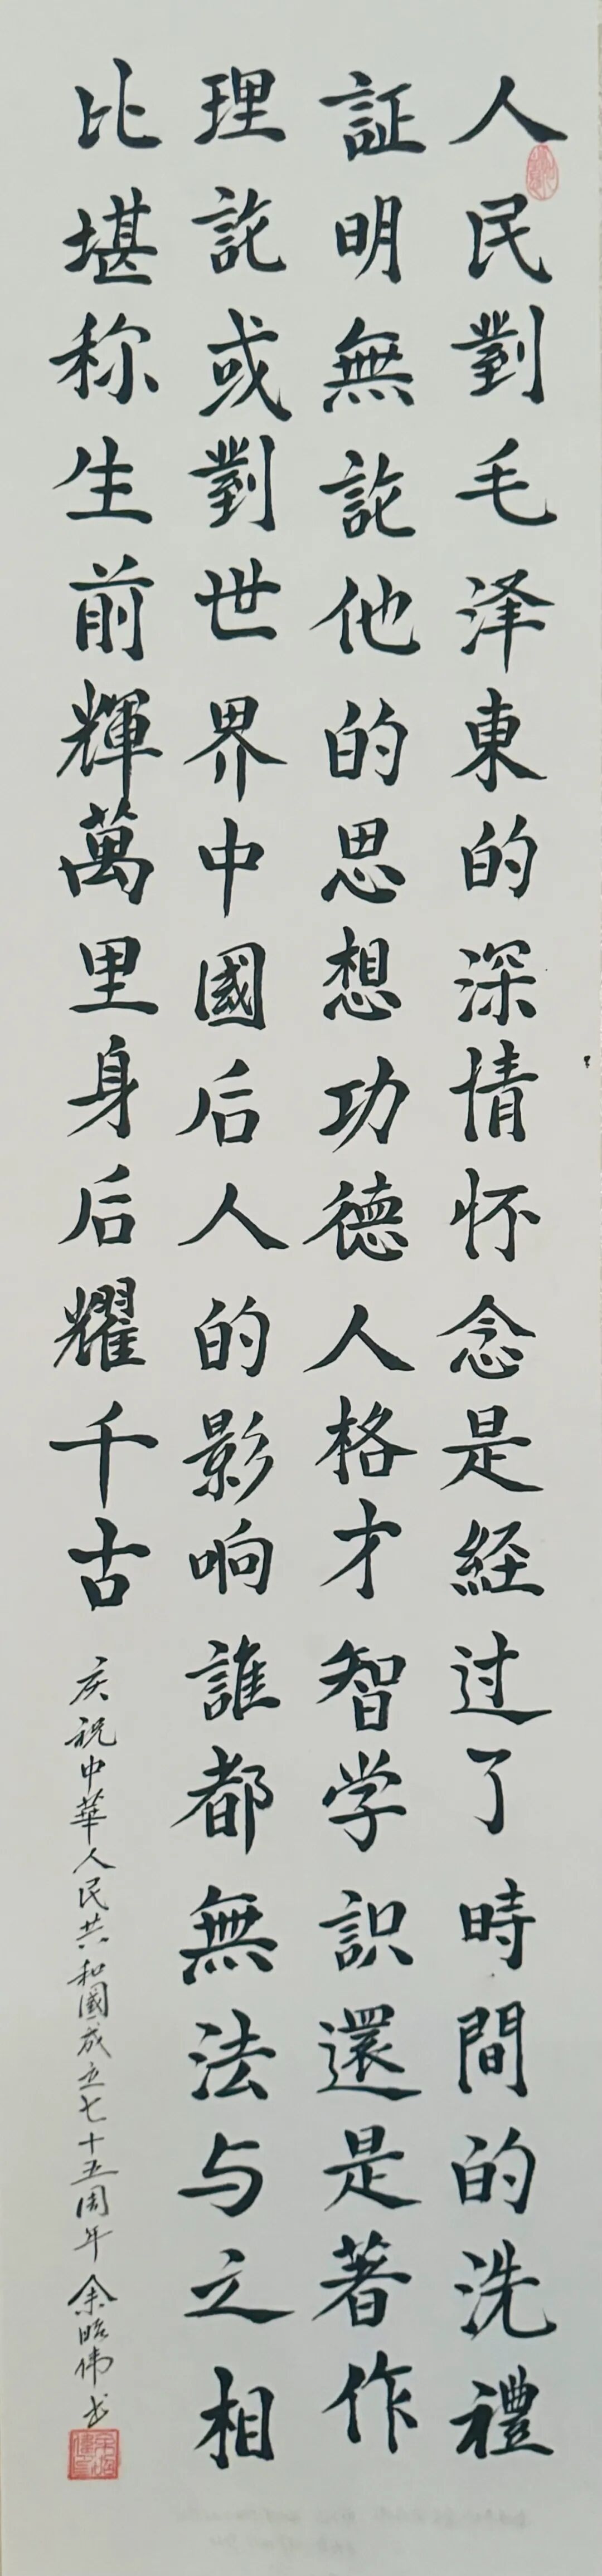 人民對毛泽東的深情怀念是経过了時間的洗禮
証明無论他的思想功德人格才智学识還是著作
理论或對世界中國后人的影响誰都無法与之相
比堪称生前輝萬里身后耀千古
庆祝中華人民共和國成立七十五周年 余昭伟书